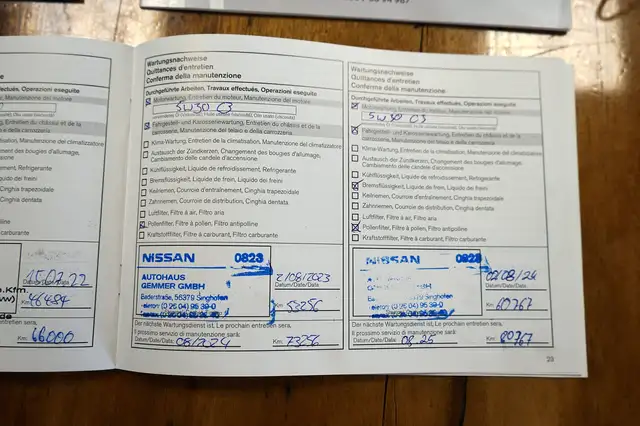 .Kfm.
15.02.22
46484
66000
Wartungsnachweise
Quittances d'entretien
Conferma della manutenzione
Durchgeführte Arbeiten, Travaux effectués, Operazioni eseguite
Motorwartung, Entretien du moteur, Manutenzione del motore
5W30 C3
Fahrgestell- und Karosseriewartung, Entretien du châssis et de la
carrosserie, Manutenzione del telaio e della carrozzeria
Klima-Wartung, Entretien de la climatisation, Manutenzione del climatizzatore
Austausch der Zündkerzen, Changement des bougies d'allumage,
Cambiamento delle candele d'accensione
Kühlflüssigkeit, Liquide de refroidissement, Refrigerante
Bremsflüssigkeit, Liquide de frein, Liquido dei freini
Keilriemen, Courroie de distribution, Cinghia trapezoidale
Zahnriemen, Courroie de distribution, Cinghia dentata
Luftfilter, Filtre à air, Filtro aria
Pollenfilter, Filtre à pollen, Filtro antipolline
Kraftstofffilter, Filtre à carburant, Filtro carburante
NISSAN 0823
AUTOHAUS
GEMMER GMBH
Bäderstraße, 56379 Singhofen
2/08/2023
Datum/Date/Data:
Km: 53256
Der nächste Wartungsdienst ist, Le prochain entretien sera,
Il prossimo servizio di manutenzione sarà:
Datum/Date/Data: 08/2024 Km: 73256
Wartungsnachweise
Quittances d'entretien
Conferma della manutenzione
Durchgeführte Arbeiten, Travaux effectués, Operazioni eseguite
Motorwartung, Entretien du moteur, Manutenzione del motore
5W30 C3
Fahrgestell- und Karosseriewartung, Entretien du châssis et de la
carrosserie, Manutenzione del telaio e della carrozzeria
Klima-Wartung, Entretien de la climatisation, Manutenzione del climatizzatore
Austausch der Zündkerzen, Changement des bougies d'allumage,
Cambiamento delle candele d'accensione
Kühlflüssigkeit, Liquide de refroidissement, Refrigerante
Bremsflüssigkeit, Liquide de frein, Liquido dei freini
Keilriemen, Courroie de distribution, Cinghia trapezoidale
Zahnriemen, Courroie de distribution, Cinghia dentata
Luftfilter, Filtre à air, Filtro aria
Pollenfilter, Filtre à pollen, Filtro antipolline
Kraftstofffilter, Filtre à carburant, Filtro carburante
NISSAN 0823
GMBH
02/08/24
Datum/Date/Data:
Km: 60767
Der nächste Wartungsdienst ist, Le prochain entretien sera,
Il prossimo servizio di manutenzione sarà:
Datum/Date/Data: 08.25 Km: 80767
23